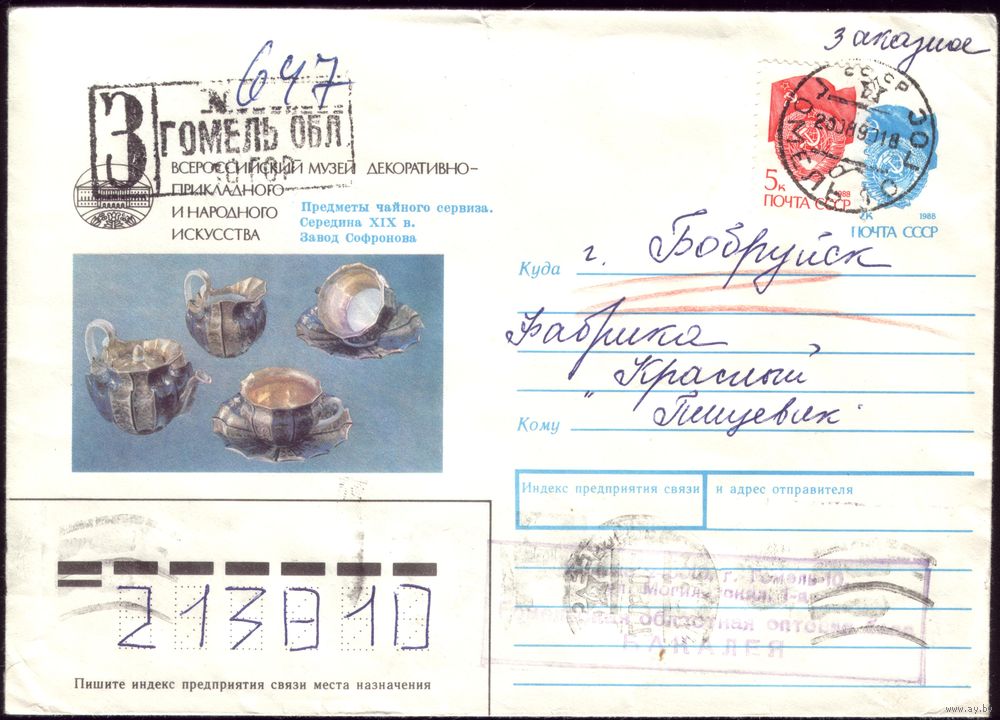 Заказное
647
З
№
ГОМЕЛЬ ОБЛ
ВСЕРОССИЙСКИЙ МУЗЕЙ ДЕКОРАТИВНО-
ПРИКЛАДНОГО
И НАРОДНОГО
ИСКУССТВА
Предметы чайного сервиза.
Середина XIX в.
Завод Софронова
СССР
5к
1988
ПОЧТА СССР
1988
ПОЧТА СССР
Куда г. Бобруйск
Фабрика
"Красный
Кому Пищевик"
Индекс предприятия связи и адрес отправителя
г. Гомель-10
областная оптовая
БАКАЛЕЯ
213810
Пишите индекс предприятия связи места назначения
www.ay.by